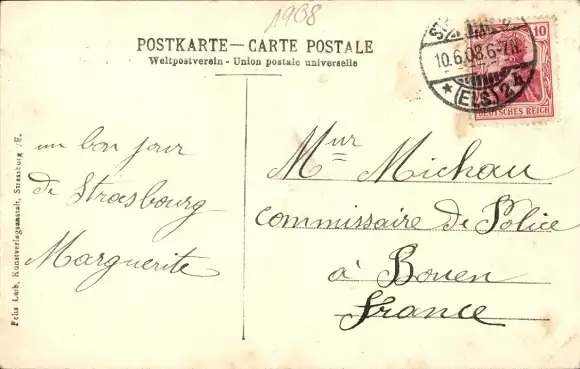 1908
POSTKARTE — CARTE POSTALE
Weltpostverein - Union postale universelle
10.6.08.6-7N.
* (ELS.) 2
10
DEUTSCHES REICH
un bon jour
de Strasbourg
Marguerite
Mur Michau
commissaire de Police
à Bouen
France
Felix Luib, Kunstverlagsanstalt, Strassburg i/E.